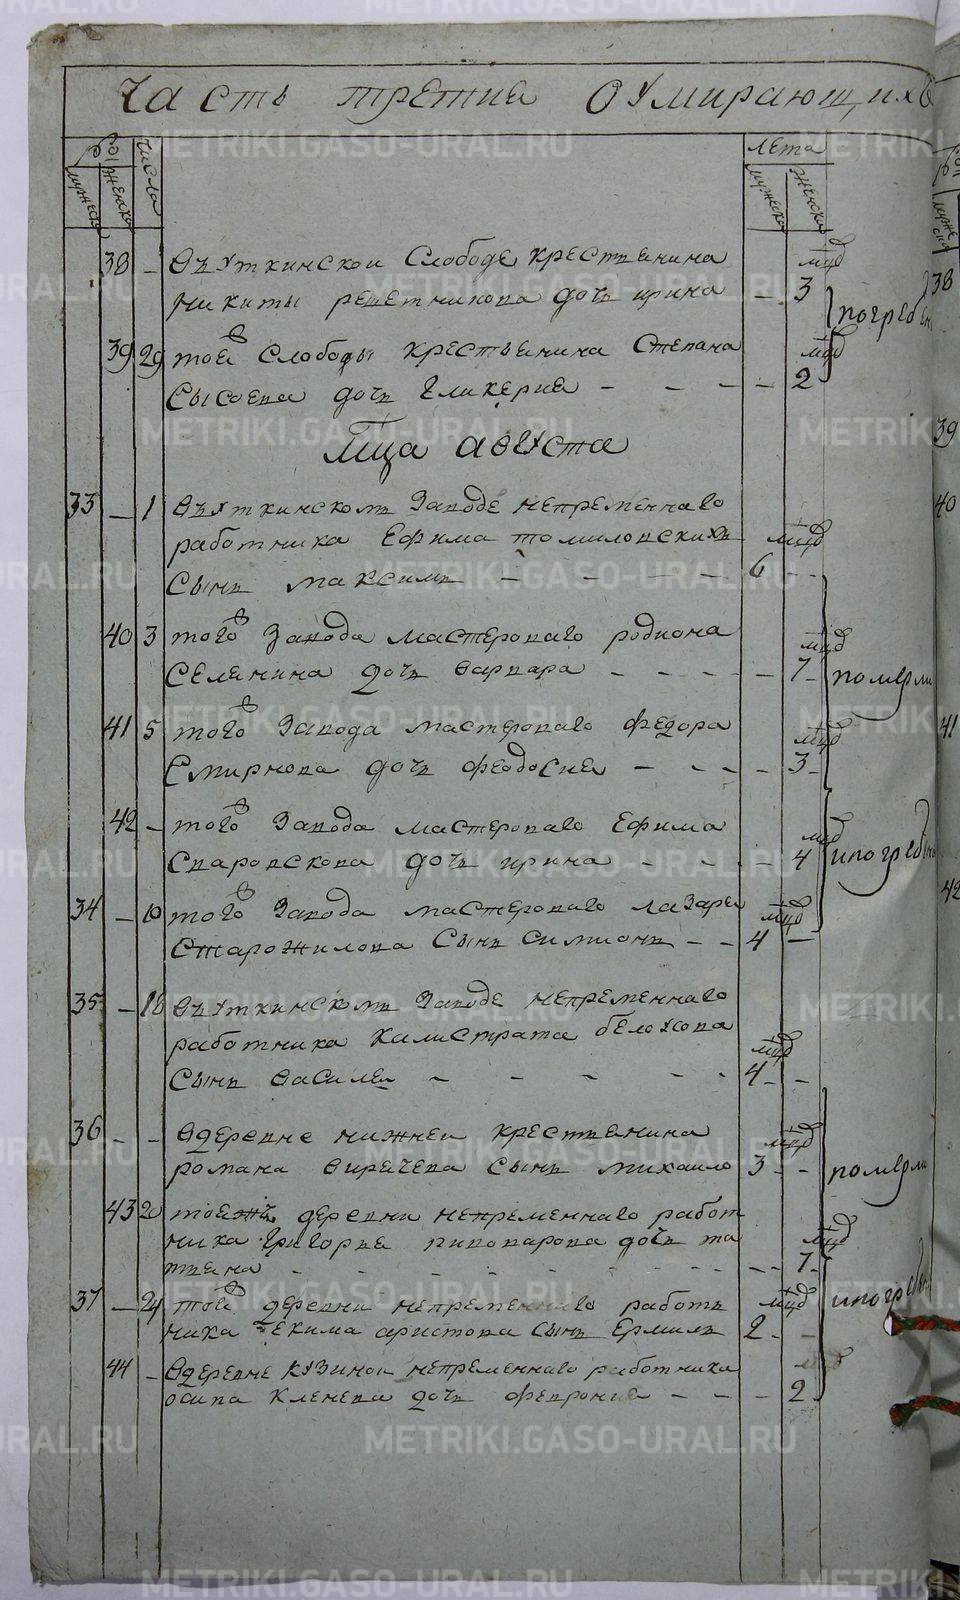 Часть третиа оумирающихъ
числа
лета
мужеска женска
мужеска женска
38 – Въуткинскои Слободе крестьянина мцд
никиты решетникова дочь ирина – 3
погребен
39 29 тоей Слободы крестьянина Степана мцд
Сысоева дочь Гликериа – – – – 2
Мца августа
33 – 1 Въуткинскомъ Заводе непременнаго
работника Ефима томиловскихъ мцд
Сынъ максимъ – – – – 6 –
40 3 того Завода мастероваго родиона мцд
Селянина дочь варвара – – – – – 7 –
померли
41 5 того Завода мастероваго федора мцд
Смирнова дочь феодосиа – – – – 3 –
42 – того Завода мастероваго Ефима мцд
Спаровскова дочь ирина – – – – 4
ипогребены
34 – 10 того Завода мастероваго лазаря мцд
Старожилова Сынъ Симионъ – – 4 –
35 – 18 Въуткинскомъ Заводе непременнаго
работника Калистрата белоусова мцд
Сынъ василеи – – – – – 4 – –
36 – – Вдеревне нижнеи крестьянина мцд
романа вирачева Сынъ михаило 3 – –
померли
43 20 тоежъ деревни непременнаго работ
ника Григориа пивоварова дочь та мцд
тиана – – – – – – – – 7 –
37 – 24 той деревни непременнаго работъ мцд
ника екима аристова Сынъ Ермилъ 2 – –
ипогребен
44 – Вдеревне Кузинои непременнаго работника мцд
осипа Кленева дочь феврониа – – – 2
38
39
40
41
42
METRIKI.GASO-URAL.RU